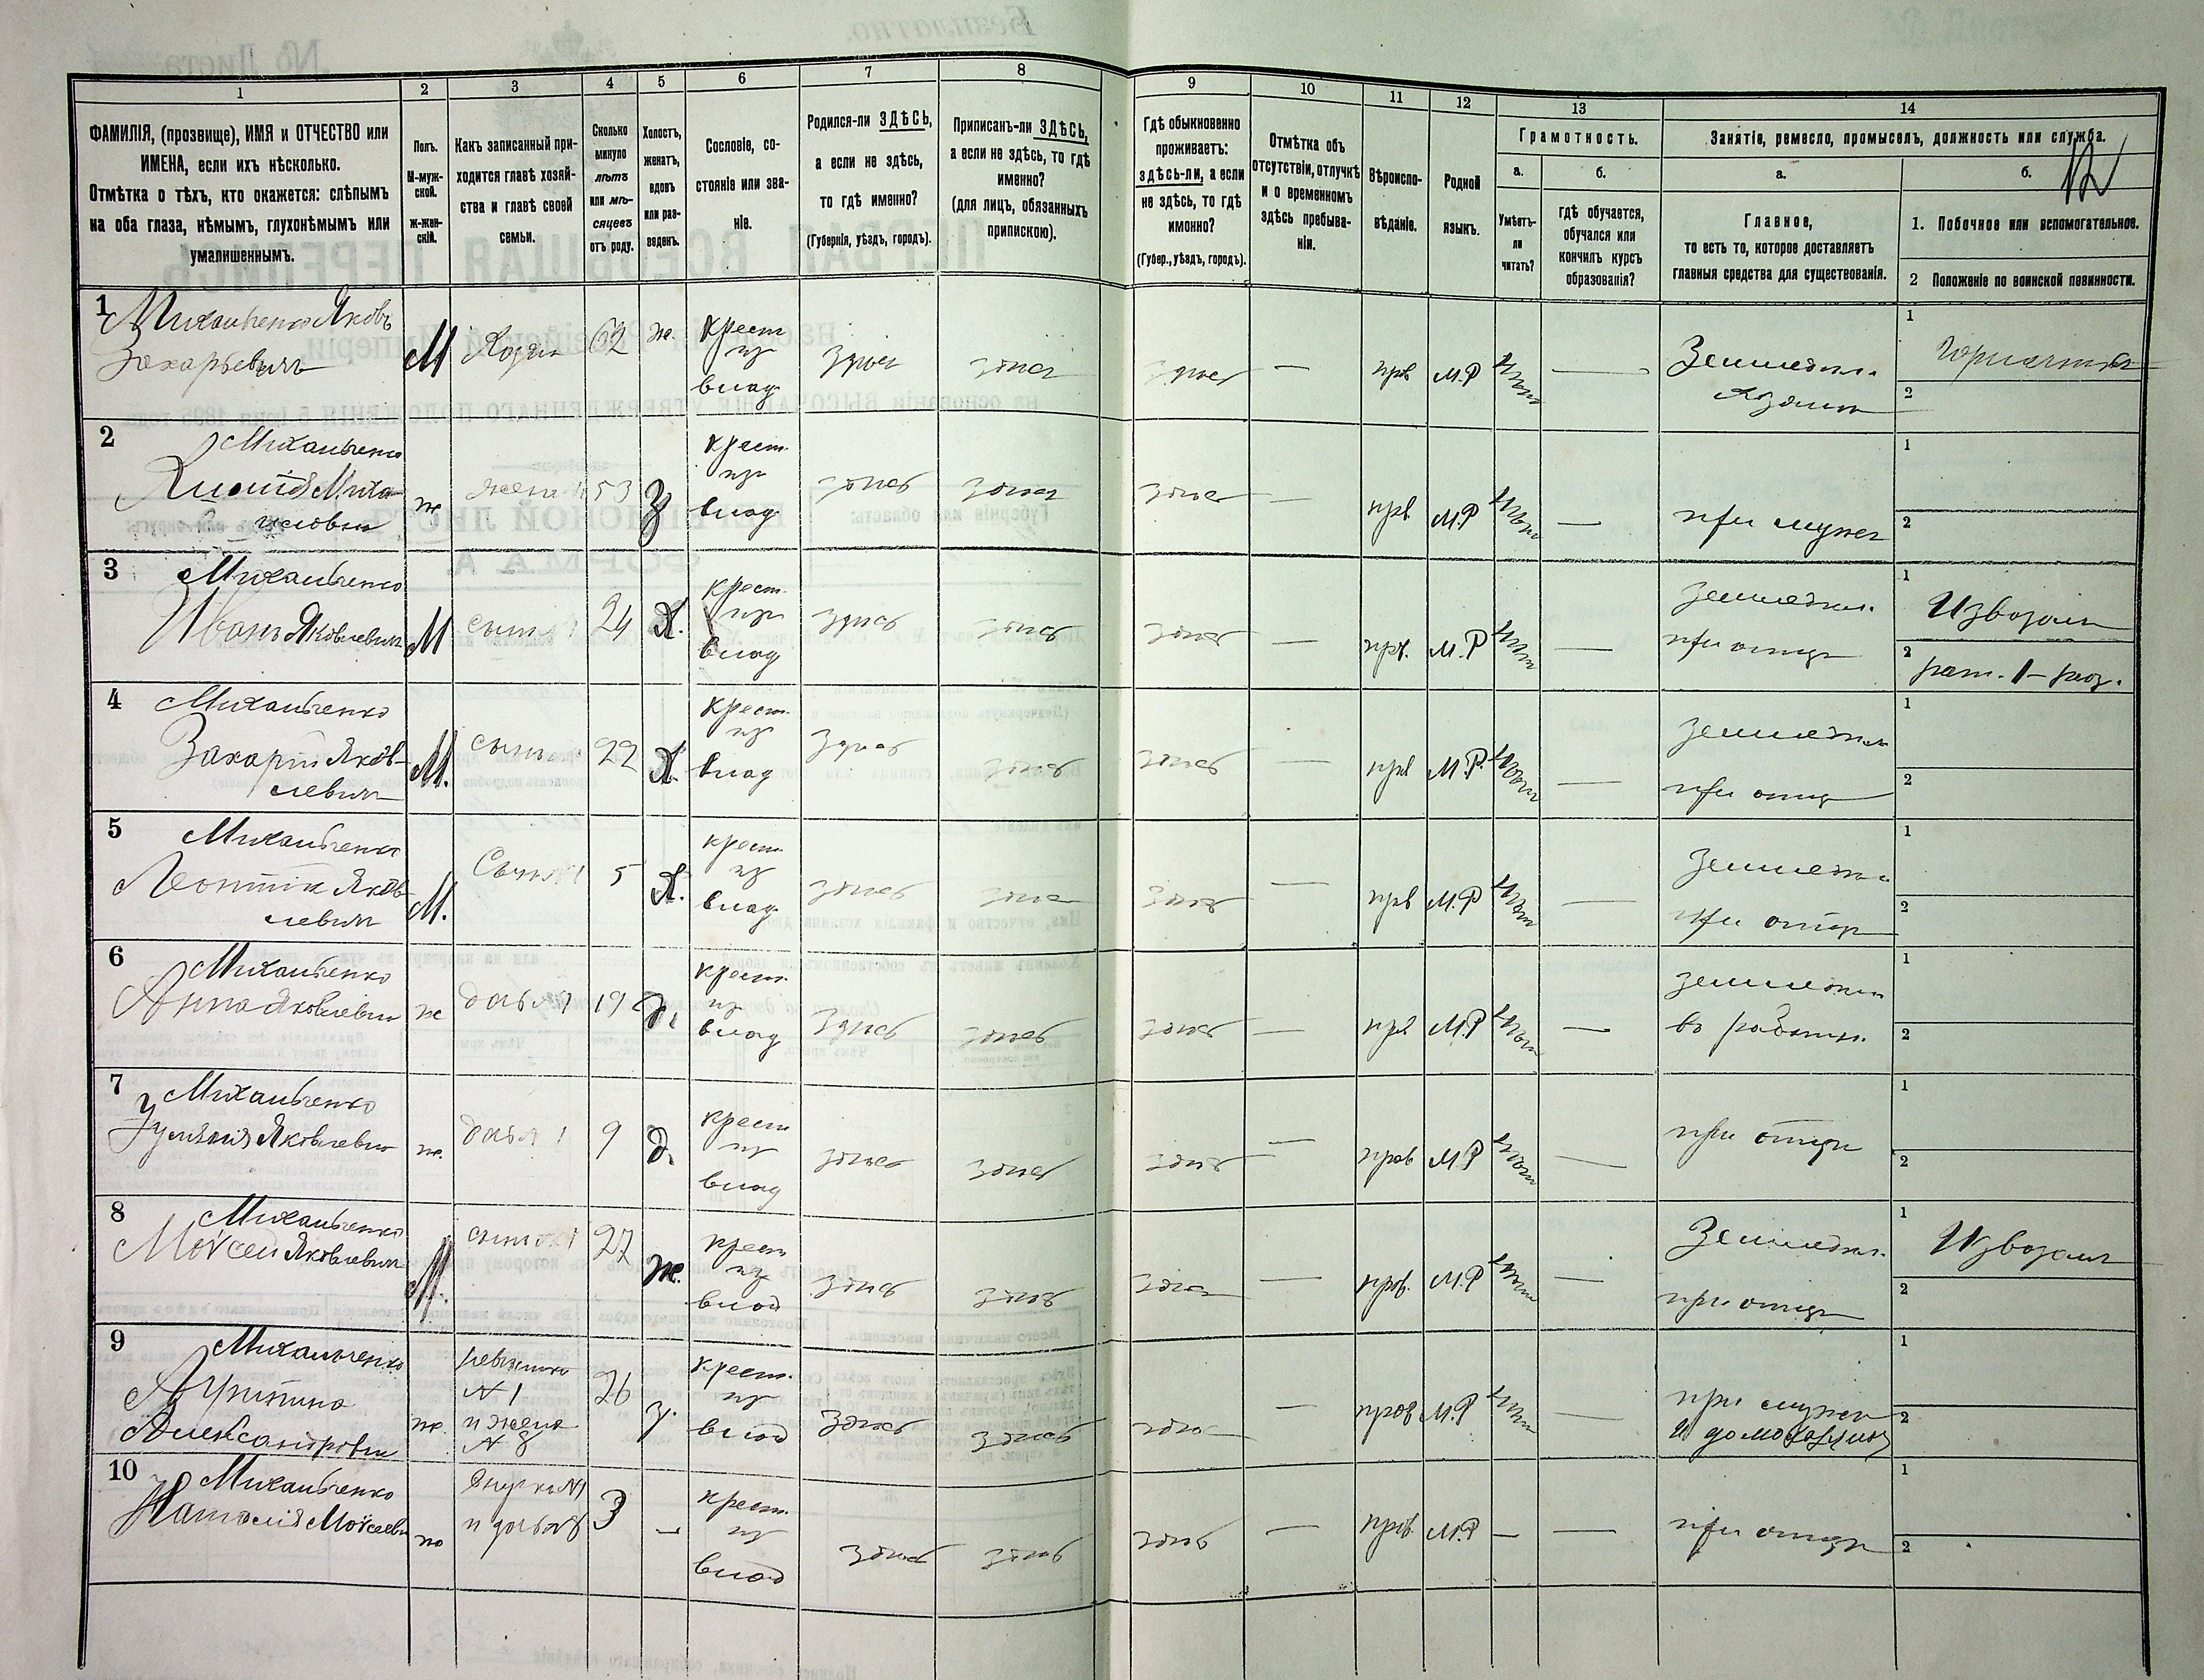 1
2
3
4
5
6
7
8
9
10
11
12
13
14
ФАМИЛІЯ, (прозвище), ИМЯ и ОТЧЕСТВО или
ИМЕНА, если ихъ нѣсколько.
Отмѣтка о тѣхъ, кто окажется: слѣпымъ
на оба глаза, нѣмымъ, глухонѣмымъ или
умалишеннымъ.
Полъ.
М-муж-
ской.
Ж-жен-
скій.
Какъ записанный при-
ходится главѣ хозяй-
ства и главѣ своей
семьи.
Сколько
минуло
лѣтъ
или мѣ-
сяцевъ
отъ роду.
Холостъ,
женатъ,
вдовъ
или раз-
веденъ.
Сословіе, со-
стояніе или зва-
ніе.
Родился-ли ЗДѢСЬ,
а если не здѣсь,
то гдѣ именно?
(Губернія, уѣздъ, городъ).
Приписанъ-ли ЗДѢСЬ,
а если не здѣсь, то гдѣ
именно?
(для лицъ, обязанныхъ
припискою).
Гдѣ обыкновенно
проживаетъ:
здѣсь-ли, а если
не здѣсь, то гдѣ
именно?
(Губер., уѣздъ, городъ).
Отмѣтка объ
отсутствіи, отлучкѣ
и о временномъ
здѣсь пребыва-
ніи.
Вѣроиспо-
вѣданіе.
Родной
языкъ.
Грамотность.
а.
Умѣетъ-
ли
читать?
б.
гдѣ обучается,
обучался или
кончилъ курсъ
образованія?
Занятіе, ремесло, промыселъ, должность или служба.
12
а.
Главное,
то есть то, которое доставляетъ
главныя средства для существованія.
б.
1. Побочное или вспомогательное.
2 Положеніе по воинской повинности.
1
Михальченко Яковъ
Захарьевичъ
М
62
ж.
крест
из
влад
здѣсь
здѣсь
здѣсь
—
прв
М.Р
нѣтъ
—
Земледѣл.
1
2
2
Михальченко
ж
жена
53
З
крест.
из
влад
здѣсь
здѣсь
здѣсь
—
прв
М.Р
нѣтъ
—
при мужѣ
1
2
3
Михальченко
Иванъ Яковлевичъ
М
сынъ
24
Х.
крест.
из
влад
здѣсь
здѣсь
здѣсь
—
прв.
М.Р
нѣтъ
—
земледѣл.
при отцѣ
1
Извозомъ
2
рат. 1 – раз.
4
Михальченко
Захарій Яков-
левичъ
М.
сынъ
22
Х.
крест.
из
влад
здѣсь
здѣсь
здѣсь
—
прв
М.Р.
нѣтъ
—
земледѣл
при отцѣ
1
2
5
Михальченко
Леонтій Яков-
левичъ
М.
Сынъ
5
Х.
крест.
из
влад
здѣсь
здѣсь
здѣсь
—
прв
М.Р
нѣтъ
—
земледѣл
при отцѣ
1
2
6
Михальченко
Анна Яковлевна
ж
дочь №1
19
д.
крест.
из
влад
здѣсь
здѣсь
здѣсь
—
прв
М.Р
нѣтъ
—
земледѣл
1
2
7
Михальченко
Яковлевна
ж.
дочь 1
9
д.
крест
из
влад
здѣсь
здѣсь
здѣсь
—
прав
М.Р
нѣтъ
—
при отцѣ
1
2
8
Михальченко
Моѵсей Яковлевичъ
М.
сынъ 1
27
ж.
крест
из
влад
здѣсь
здѣсь
здѣсь
—
прав.
М.Р
нѣтъ
—
Земледѣл.
при отцѣ
1
Извозомъ
2
9
Михальченко
Александровна
ж.
невѣстка
№ 1
и жена
№ 8
26
з.
крест.
из
влад
здѣсь
здѣсь
здѣсь
—
прав
М.Р
нѣтъ
—
при мужѣ
1
2
10
Михальченко
Наталія Моѵсеевн
внучка №1
и дочь №8
3
—
крест.
из
влад
здѣсь
здѣсь
здѣсь
—
прав.
М.Р
—
—
при отцѣ
1
2